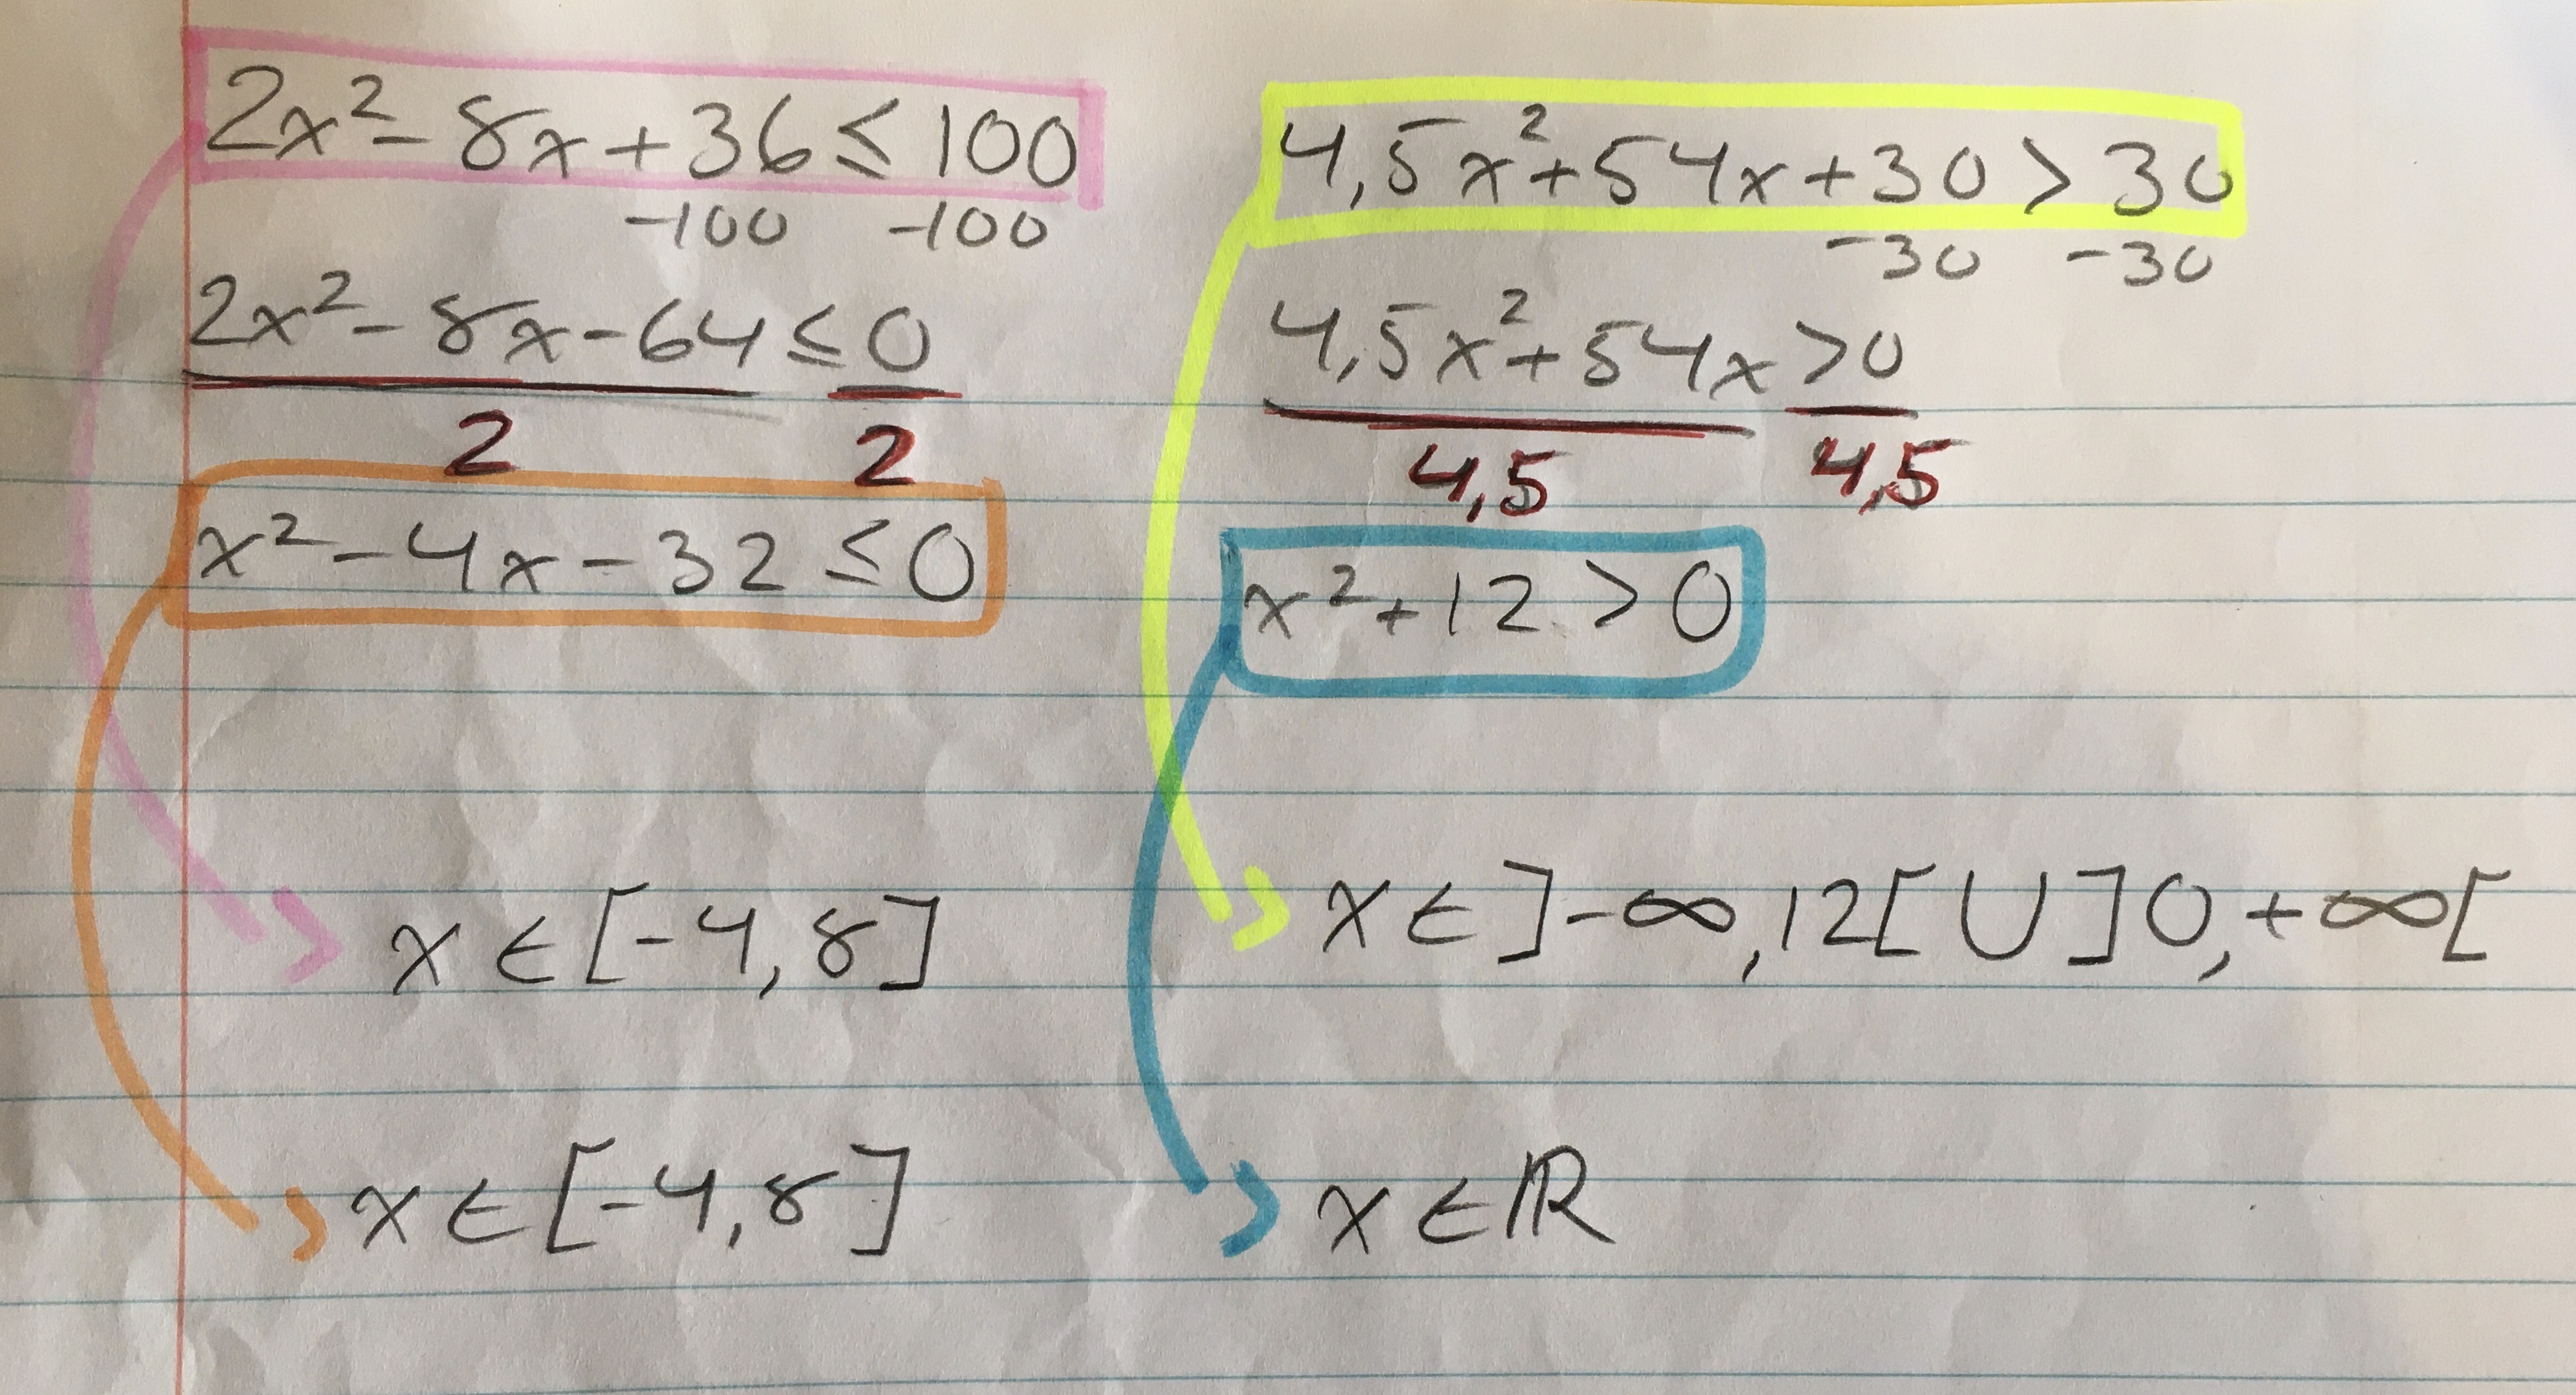 2x² - 8x + 36 ≤ 100
-100 -100
2x² - 8x - 64 ≤ 0
2 2
x² - 4x - 32 ≤ 0
x ∈ [-4,8]
x ∈ [-4,8]
4,5x² + 54x + 30 > 30
-30 -30
4,5x² + 54x > 0
4,5 4,5
x² + 12 > 0
x ∈ ]-∞,12[ U ]0,+∞[
x ∈ ℝ